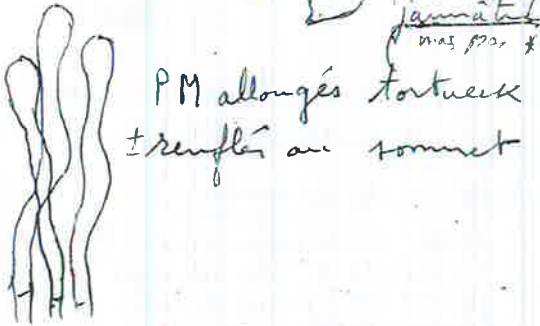 jaunâtre
PM allongés tortueux
± renflés au sommet